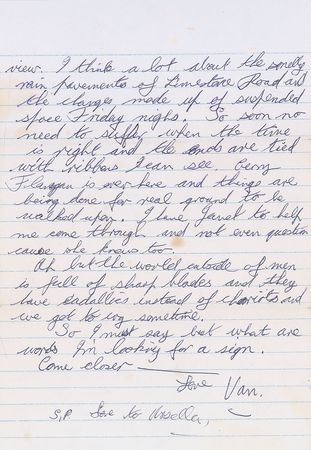 view. I think a lot about the smelly
rain pavements of Limestone Road and
the changes made up of suspended
space Friday nights. So soon no
need to suffer, when the time
is right and the ends are tied
with ribbons I can see. Gerry
Flanagan is over here and things are
being done for real ground to be
walked upon. I have Janet to help
me come through and not even question
cause she knows too—
Ah but the world outside of men
is full of sharp blades and they
have cadallics instead of chariots and
we got to cry sometime.
So I must say but what are
words I'm looking for a sign.
Come closer —
Love Van.
S,P Love to Ursella,